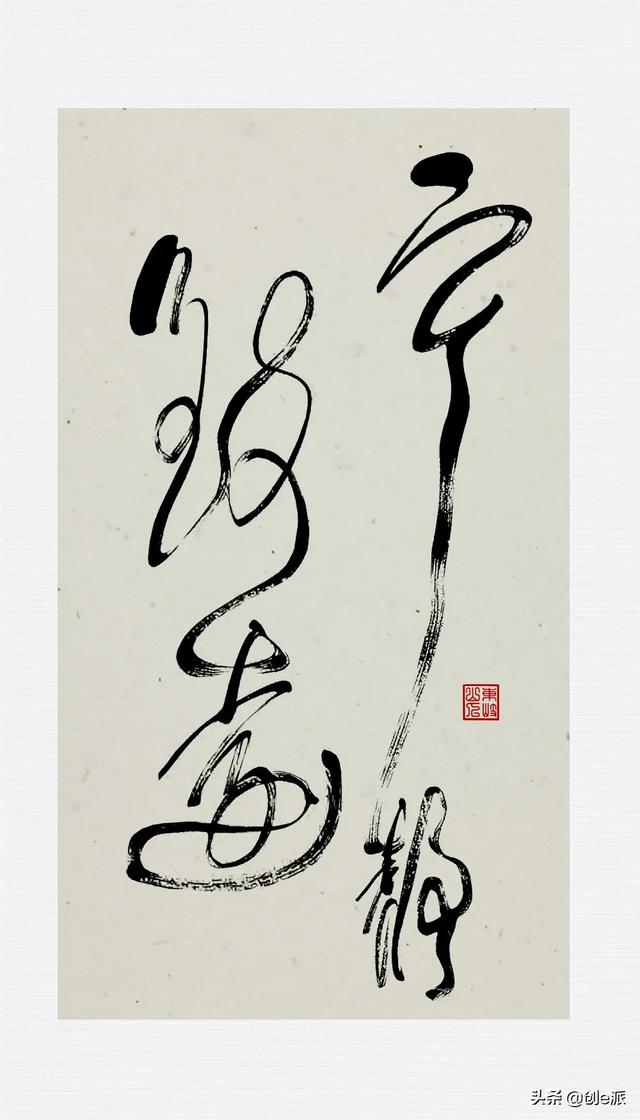 宁静
致遠
头条 @创e派